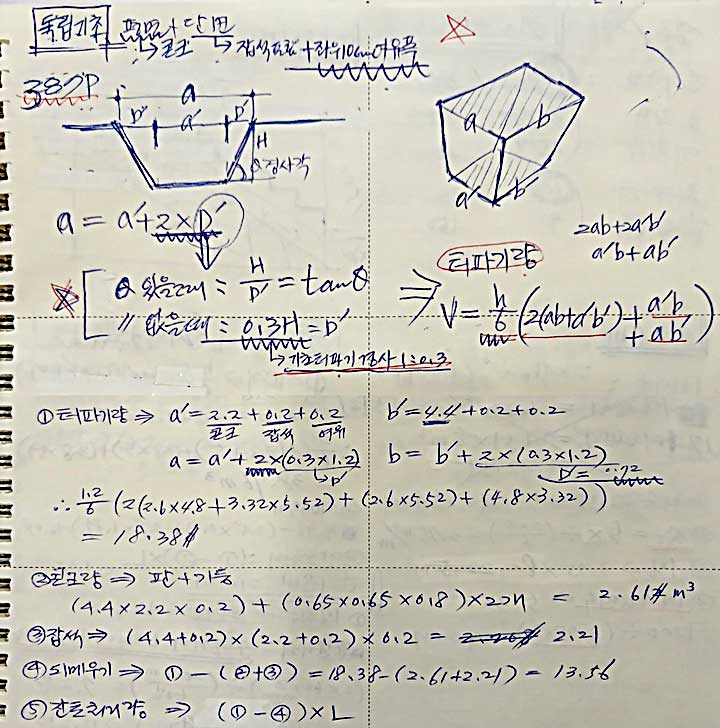 독립기초 평면+단면
→콘크 → 잡석도면 + 좌우10cm여유폭
387P
a
D' a' D'
H
θ경사각
a b
a' b'
a = a'+2×D'
θ 있을때 : H/D' = tanθ
〃 없을때 : 0.3H = D'
↳기초터파기 경사 1:0.3
2ab+2a'b'
a'b+ab'
터파기량
⇒ V = h/6 (2(ab+a'b')+a'b+ab')
①터파기량 ⇒ a' = 2.2+0.2+0.2 b' = 4.4+0.2+0.2
콘크 잡석 여유
a = a'+2×(0.3×1.2) b = b'+2×(0.3×1.2)
↳D' D' = 0.72
∴ 1.2/6 (2(2.6×4.8+3.32×5.52)+(2.6×5.52)+(4.8×3.32))
= 18.38
②콘크량 ⇒ 판+기둥
(4.4×2.2×0.2)+(0.65×0.65×0.8)×2개 = 2.61 m³
③잡석 ⇒ (4.4+0.2)×(2.2+0.2)×0.2 = 2.21
④되메우기 ⇒ ①-(②+③) = 18.38-(2.61+2.21) = 13.56
⑤잔토처리량 ⇒ (①-④)×L